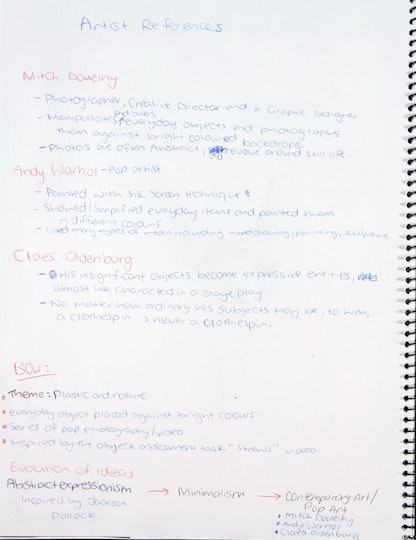 Artist References
Mitch Doweiny
- Photographer, Creative Director and a Graphic Designer.
- Manipulates and alters everyday objects and photographs
them against bright coloured backdrops.
- Photos are often Abstract, revolve around still life.
Andy Warhol - Pop artist
- Painted with Silk Screen technique
- Showed/Simplified everyday items and painted them
in different colours
- Used many types of media including hand drawing, painting, sculpture
Claes Oldenburg
- His insignificant objects become expressive entities,
almost like characters in a stage play.
- No matter how ordinary his subjects may be, to him,
a clothespin is never a clothespin.
BOW:
Theme: Plastic and nature
everyday object placed against bright colours
Series of pop photography/video
Inspired by the object assessment task "Straws" video.
Evolution of Ideas
Abstract expressionism → Minimalism → Contemporary Art/
Pop Art
Inspired by Jackson
Pollock
• Mitch Doweiny
• Andy Warhol
• Claes Oldenburg